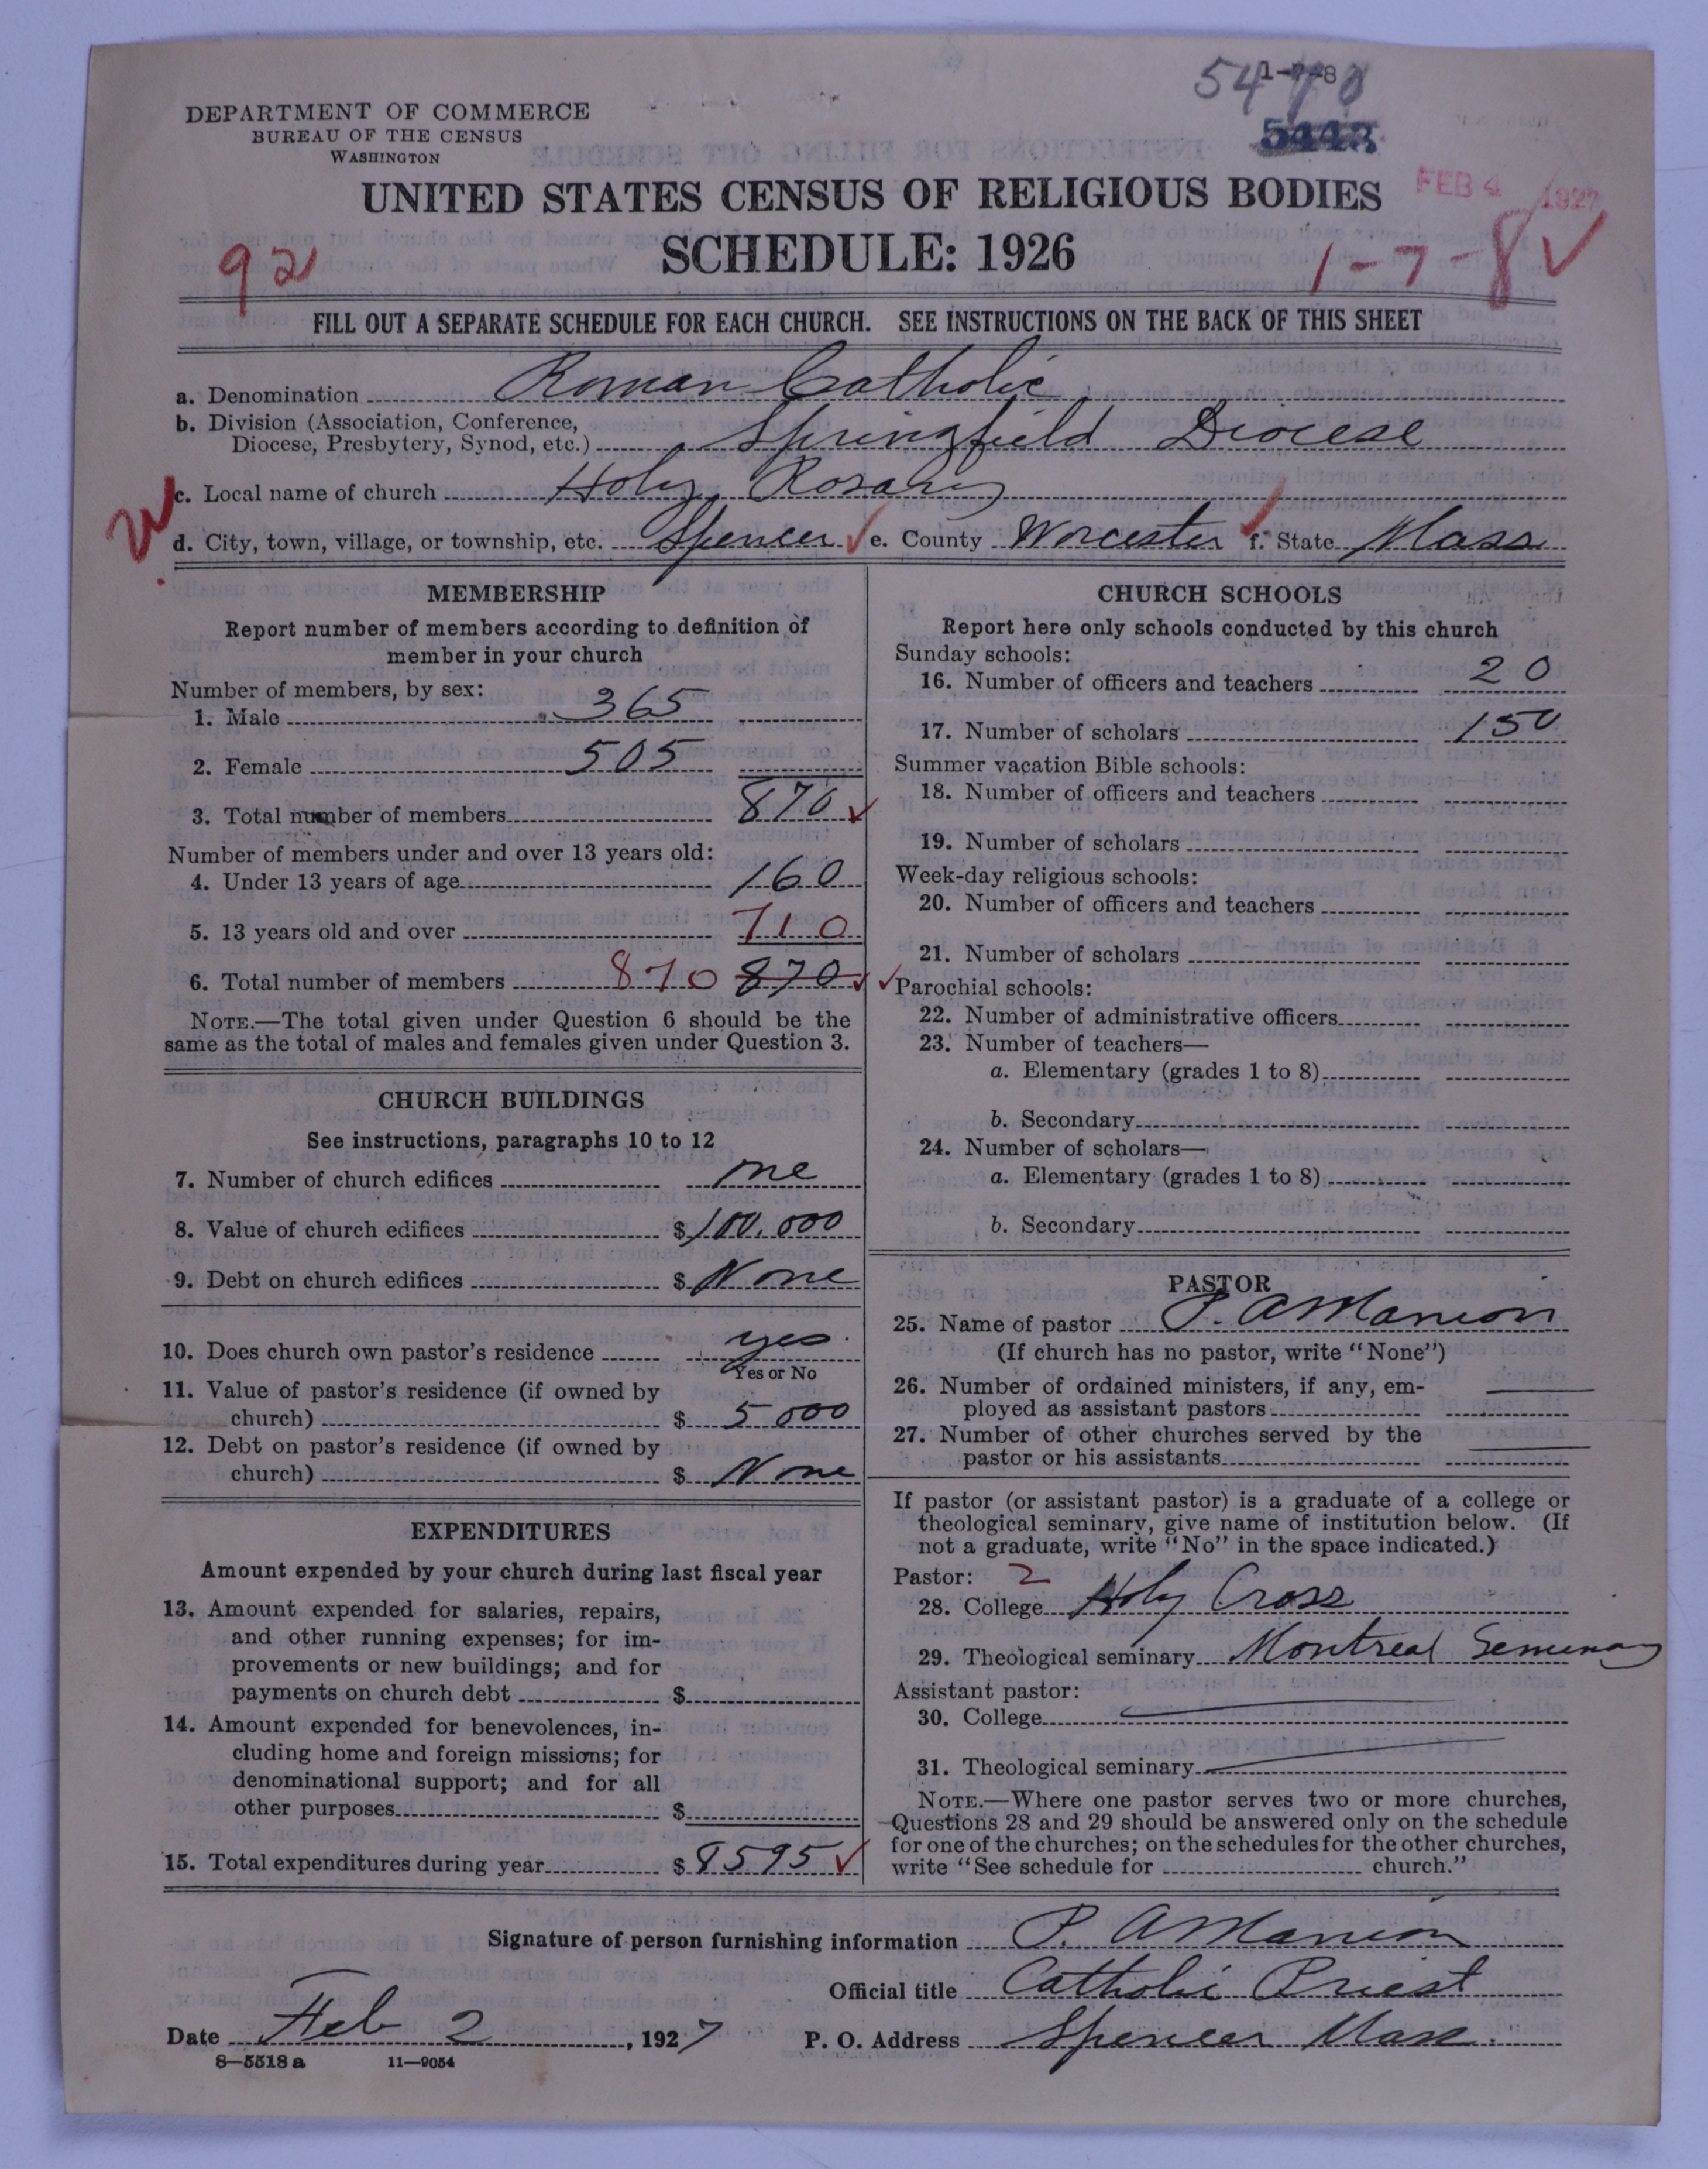 DEPARTMENT OF COMMERCE
BUREAU OF THE CENSUS
WASHINGTON
1-7-8
5443
FEB 4 1927
UNITED STATES CENSUS OF RELIGIOUS BODIES
SCHEDULE: 1926
92
1-7-8
FILL OUT A SEPARATE SCHEDULE FOR EACH CHURCH. SEE INSTRUCTIONS ON THE BACK OF THIS SHEET
a. Denomination Roman Catholic
b. Division (Association, Conference,
Diocese, Presbytery, Synod, etc.) Springfield Diocese
c. Local name of church Holy Rosary
d. City, town, village, or township, etc. Spencer e. County Worcester f. State Mass
MEMBERSHIP
Report number of members according to definition of
member in your church
Number of members, by sex:
1. Male 365
2. Female 505
3. Total number of members 870
Number of members under and over 13 years old:
4. Under 13 years of age 160
5. 13 years old and over 710
6. Total number of members 870 870
NOTE.—The total given under Question 6 should be the
same as the total of males and females given under Question 3.
CHURCH BUILDINGS
See instructions, paragraphs 10 to 12
7. Number of church edifices one
8. Value of church edifices $ 100,000
9. Debt on church edifices $ None
10. Does church own pastor's residence yes
Yes or No
11. Value of pastor's residence (if owned by
church) $ 5000
12. Debt on pastor's residence (if owned by
church) $ None
EXPENDITURES
Amount expended by your church during last fiscal year
13. Amount expended for salaries, repairs,
and other running expenses; for im-
provements or new buildings; and for
payments on church debt $
14. Amount expended for benevolences, in-
cluding home and foreign missions; for
denominational support; and for all
other purposes $
15. Total expenditures during year $ 8595
CHURCH SCHOOLS
Report here only schools conducted by this church
Sunday schools:
16. Number of officers and teachers 20
17. Number of scholars 150
Summer vacation Bible schools:
18. Number of officers and teachers
19. Number of scholars
Week-day religious schools:
20. Number of officers and teachers
21. Number of scholars
Parochial schools:
22. Number of administrative officers
23. Number of teachers—
a. Elementary (grades 1 to 8)
b. Secondary
24. Number of scholars—
a. Elementary (grades 1 to 8)
b. Secondary
PASTOR
25. Name of pastor P. A Manion
(If church has no pastor, write "None")
26. Number of ordained ministers, if any, em-
ployed as assistant pastors
27. Number of other churches served by the
pastor or his assistants
If pastor (or assistant pastor) is a graduate of a college or
theological seminary, give name of institution below. (If
not a graduate, write "No" in the space indicated.)
Pastor: 2
28. College Holy Cross
29. Theological seminary Montreal Seminary
Assistant pastor:
30. College
31. Theological seminary
NOTE.—Where one pastor serves two or more churches,
Questions 28 and 29 should be answered only on the schedule
for one of the churches; on the schedules for the other churches,
write "See schedule for church."
Signature of person furnishing information P. A Manion
Official title Catholic Priest
Date Feb 2, 1927 P. O. Address Spencer Mass.
8—5518 a 11—9054